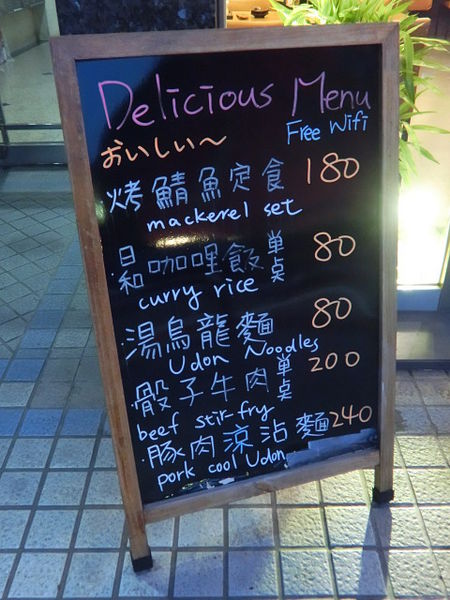 Delicious Menu
Free Wifi
おいしい〜
烤鯖魚定食 180
mackerel set
日和咖哩飯 單点 80
curry rice
·湯烏龍麵 80
Udon Noodles
骰子牛肉 單点 200
beef stir-fry
·豚肉涼沾麵 240
pork cool Udon